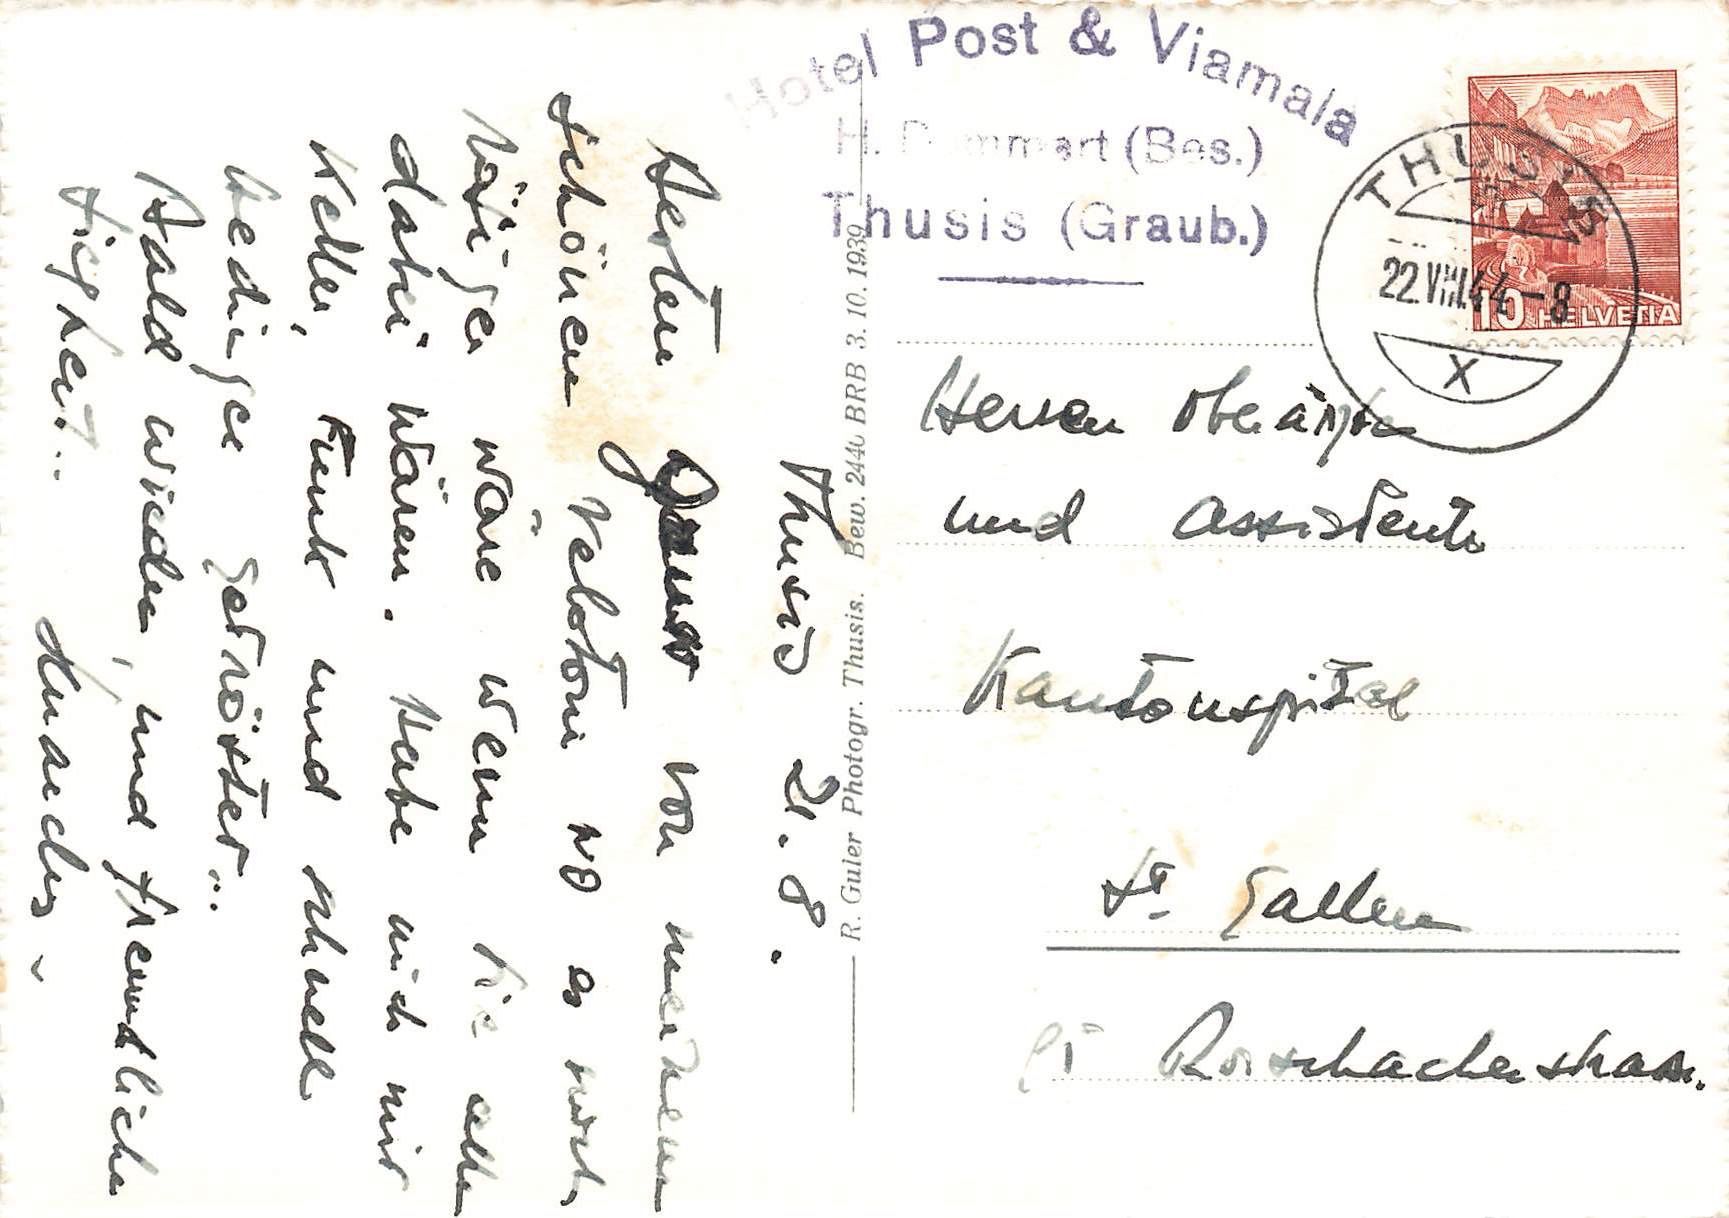 Thusis 21. 8.
Besten Gruss von meinem
schönen Velotour wo es noch
wäre wenn Sie alle
dabei wären. Habe mich mit
Keller, Funk und schnell
bedingen getröstet..
Bald wieder, und freundliche
Hotel Post & Viamala
H. D mmert (Bes.)
Thusis (Graub.)
THUSIS
22.VIII.44-8
X
10 HELVETIA
Herren Oberärzte
und Assistente
Kantonspital
St. Gallen
Rorschacherstrasse.
R. Guler Photogr. Thusis. Bew. 2440 BRB 3. 10. 1939